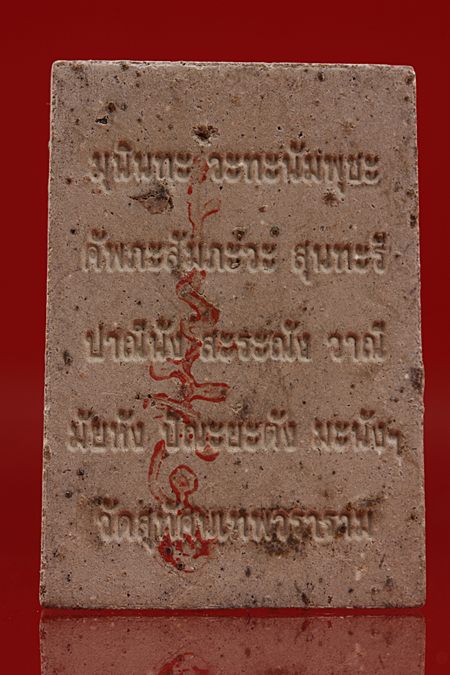 มุนินทะ วะทะนัมพุชะ
คัพภะสัมภะวะ สุนทะรี
ปาณีนัง สะระณัง วาณี
มัยหัง ปิณะยะตัง มะนังฯ
วัดสุทัศนเทพวราราม